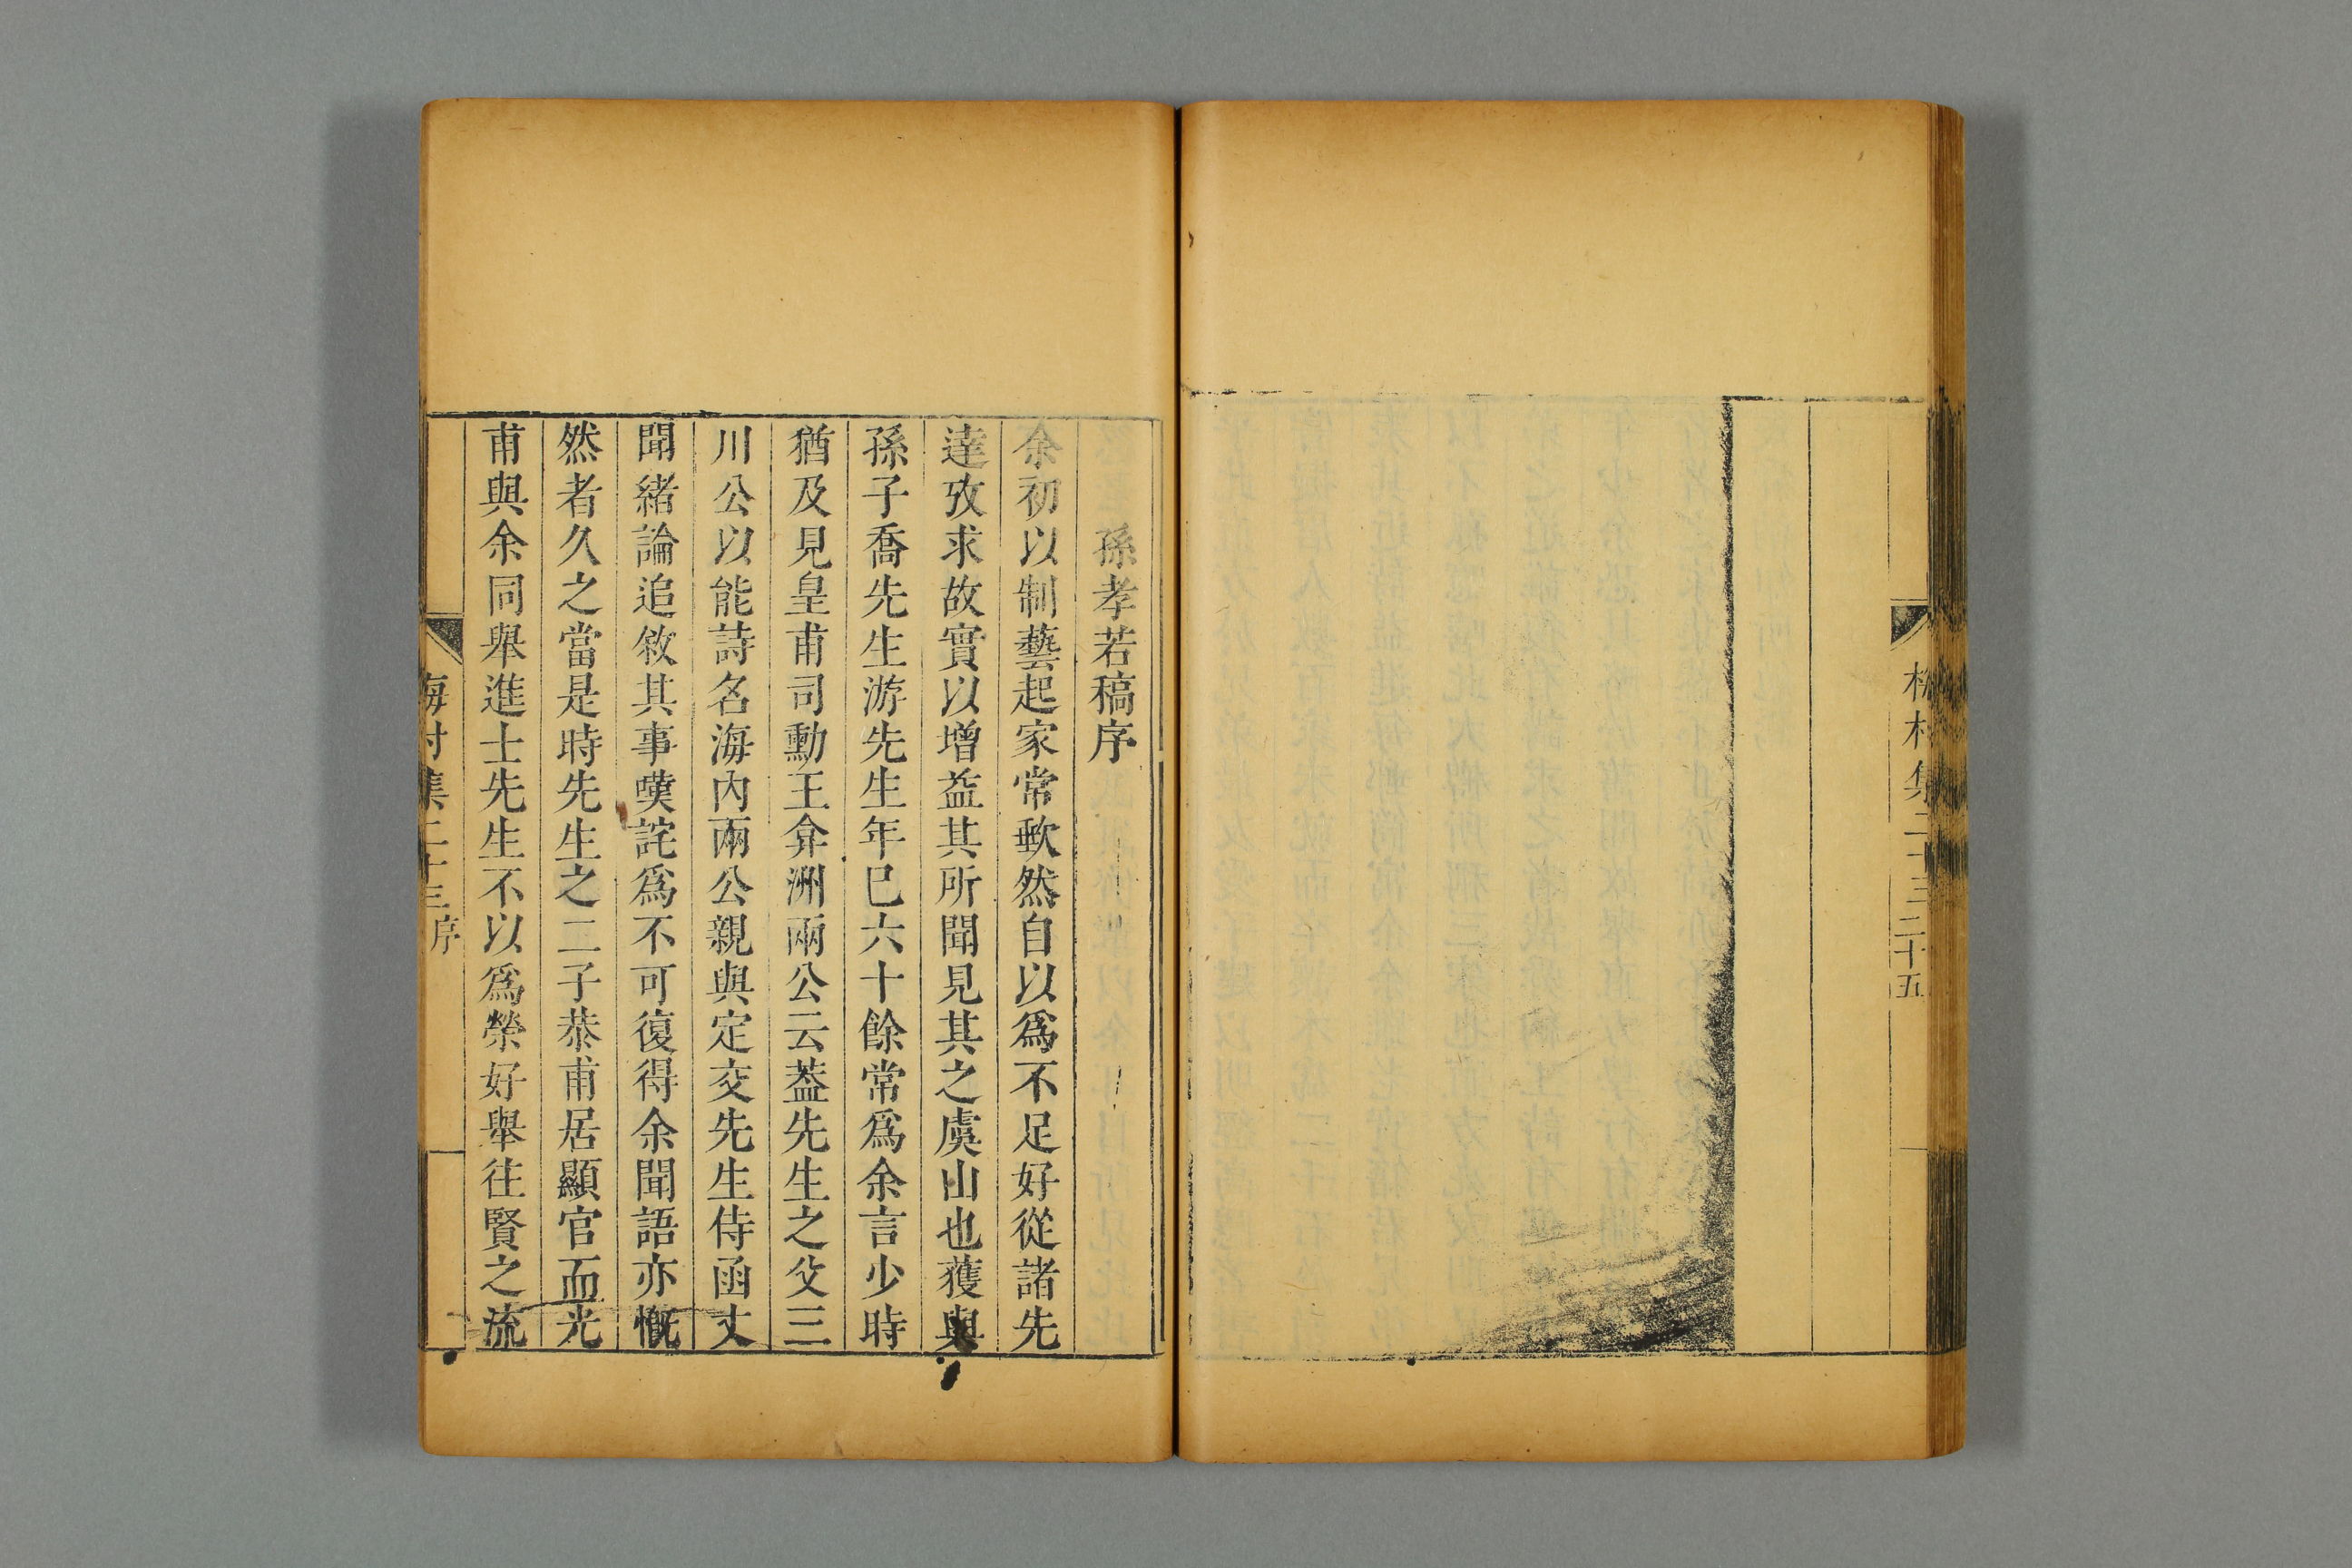 梅村集二十三 二十五
孫孝若稿序
余初以制藝起家常歉然自以爲不足好從諸先
達攷求故實以增益其所聞見其之虞山也獲與
孫子喬先生游先生年巳六十餘常爲余言少時
猶及見皇甫司勳王弇洲兩公云葢先生之父三
川公以能詩名海內兩公親與定交先生侍函丈
聞緒論追敘其事嘆詫爲不可復得余聞語亦慨
然者久之當是時先生之二子恭甫居顯官而光
甫與余同舉進士先生不以爲榮好舉往賢之流
梅村集二十三 序